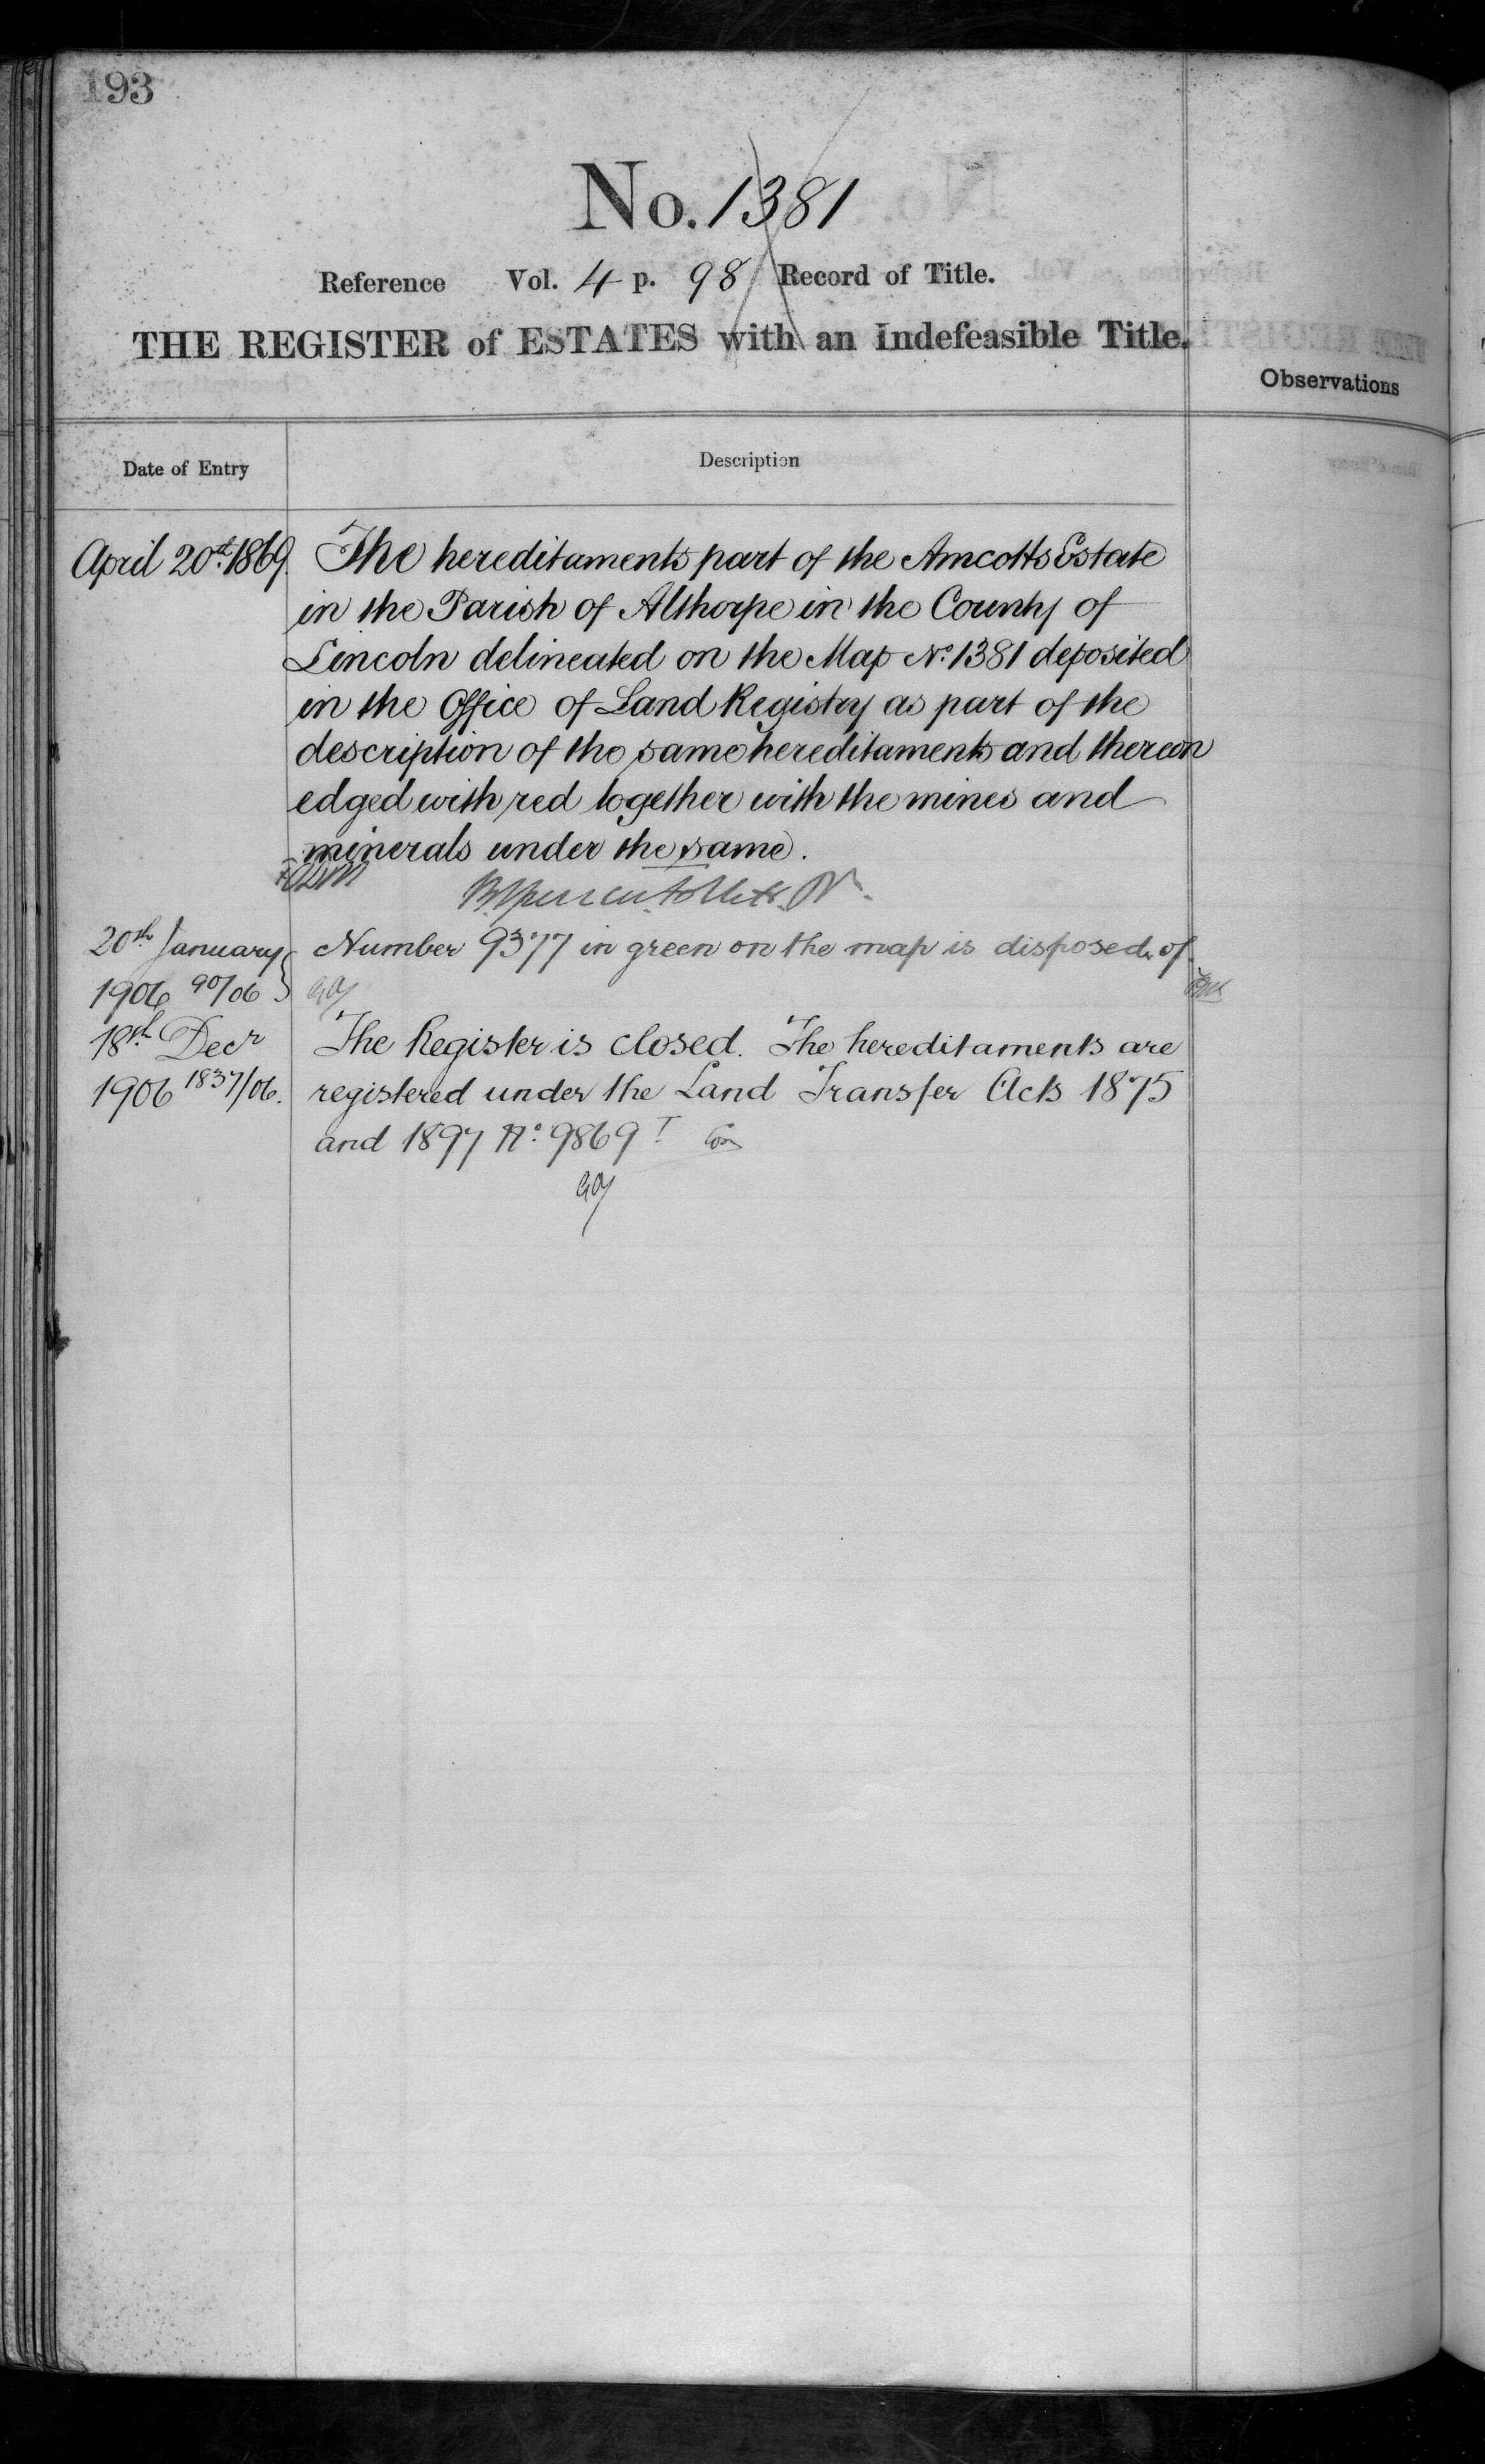 193
No. 1381
Reference Vol. 4 p. 98 Record of Title.
THE REGISTER of ESTATES with an Indefeasible Title.
Observations
Date of Entry Description
April 20th. 1869. The hereditaments part of the Amcotts Estate
in the Parish of Althorpe in the County of
Lincoln delineated on the Map No. 1381 deposited
in the Office of Land Registry as part of the
description of the same hereditaments and thereon
edged with red together with the mines and
minerals under the same.
20th January Number 9377 in green on the map is disposed of.
1906 90/06
18th Decr The Register is closed. The hereditaments are
1906 1837/06. registered under the Land Transfer Acts 1875
and 1897 No. 9869